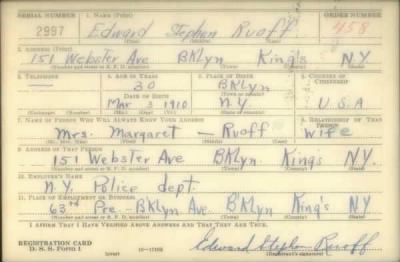 SERIAL NUMBER 1. NAME (Print) ORDER NUMBER
2997 Edward Stephen Ruoff 458
2. ADDRESS (Print)
151 Webster Ave BKLyn King's N.Y.
(Number and street or R. F. D. number) (Town) (County) (State)
3. TELEPHONE 4. AGE IN YEARS 5. PLACE OF BIRTH 6. COUNTRY OF CITIZENSHIP
30 BKLyn
DATE OF BIRTH (Town or county)
Mar 3 1910 N.Y U.S.A
(Exchange) (Number) (Mo.) (Day) (Yr.) (State or country)
7. NAME OF PERSON WHO WILL ALWAYS KNOW YOUR ADDRESS 8. RELATIONSHIP OF THAT PERSON
Mrs. Margaret — Ruoff Wife
(Mr., Mrs., Miss) (First) (Middle) (Last)
9. ADDRESS OF THAT PERSON
151 Webster Ave BKLyn Kings N.Y.
(Number and street or R. F. D. number) (Town) (County) (State)
10. EMPLOYER'S NAME
N.Y. Police dept.
11. PLACE OF EMPLOYMENT OR BUSINESS
63rd Pre. - BKLyn Ave BKLyn King's N.Y
(Number and street or R. F. D. number) (Town) (County) (State)
I AFFIRM THAT I HAVE VERIFIED ABOVE ANSWERS AND THAT THEY ARE TRUE.
REGISTRATION CARD
D. S. S. Form 1 Edward Stephen Ruoff
(over) (Registrant's signature)